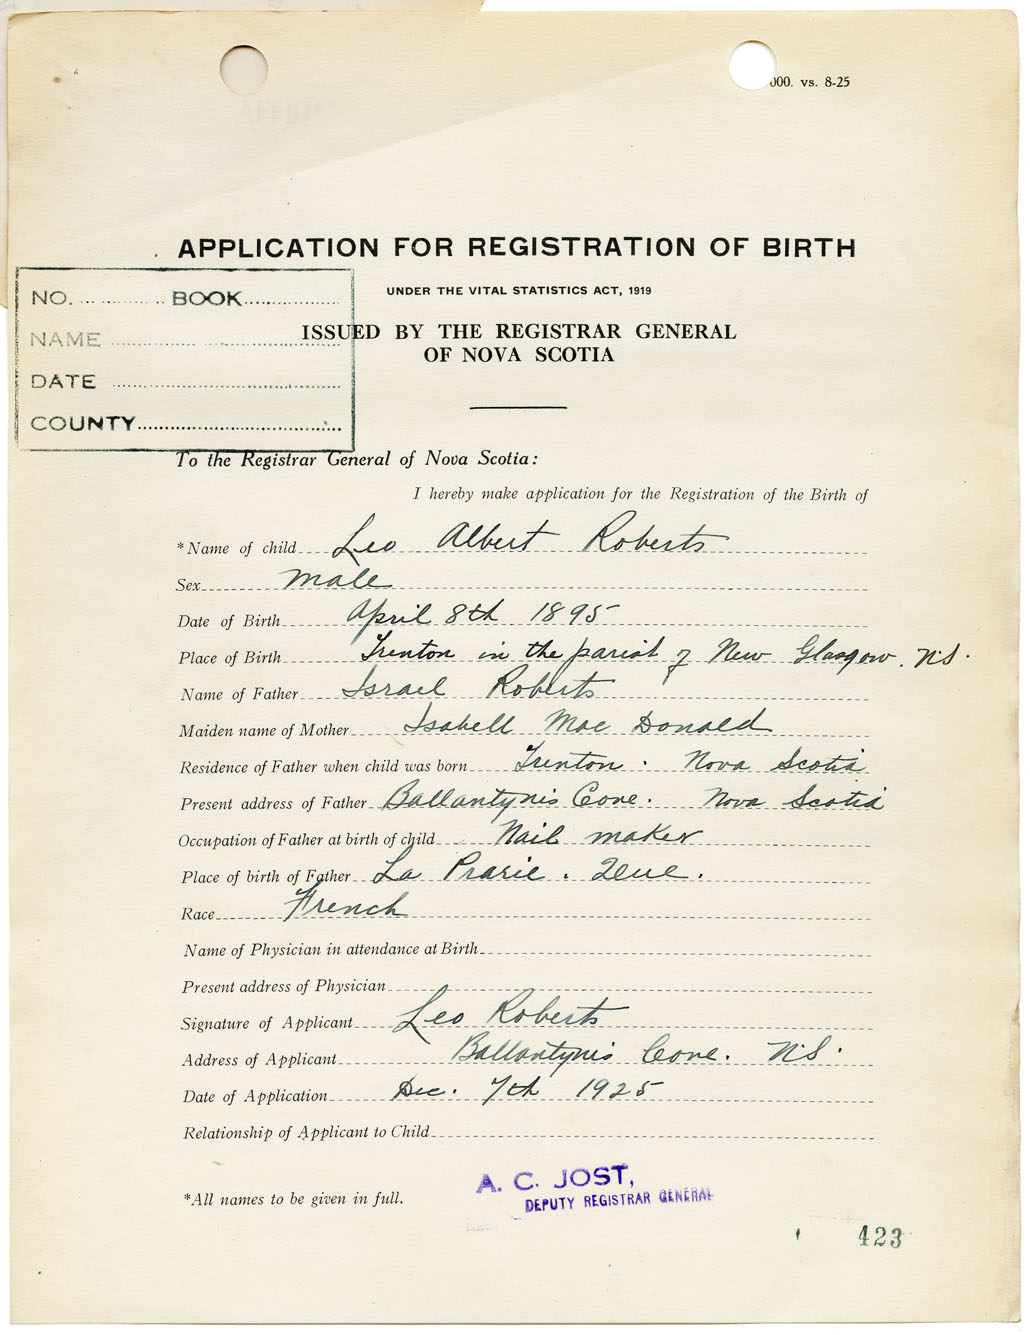 000. vs. 8-25
APPLICATION FOR REGISTRATION OF BIRTH
UNDER THE VITAL STATISTICS ACT, 1919
ISSUED BY THE REGISTRAR GENERAL
OF NOVA SCOTIA
NO. BOOK
NAME
DATE
COUNTY
To the Registrar General of Nova Scotia:
I hereby make application for the Registration of the Birth of
*Name of child Leo Albert Roberts
Sex male
Date of Birth April 8th 1895
Place of Birth Trenton in the parish of New Glasgow. N.S.
Name of Father Israel Roberts
Maiden name of Mother Isabell Mac Donald
Residence of Father when child was born Trenton. Nova Scotia
Present address of Father Ballantynis Cove. Nova Scotia
Occupation of Father at birth of child Nail maker
Place of birth of Father La Prarie. Que.
Race French
Name of Physician in attendance at Birth
Present address of Physician
Signature of Applicant Leo Roberts
Address of Applicant Ballantynis Cove. N.S.
Date of Application Dec. 7th 1925
Relationship of Applicant to Child
*All names to be given in full.
A. C. JOST,
DEPUTY REGISTRAR GENERAL
423